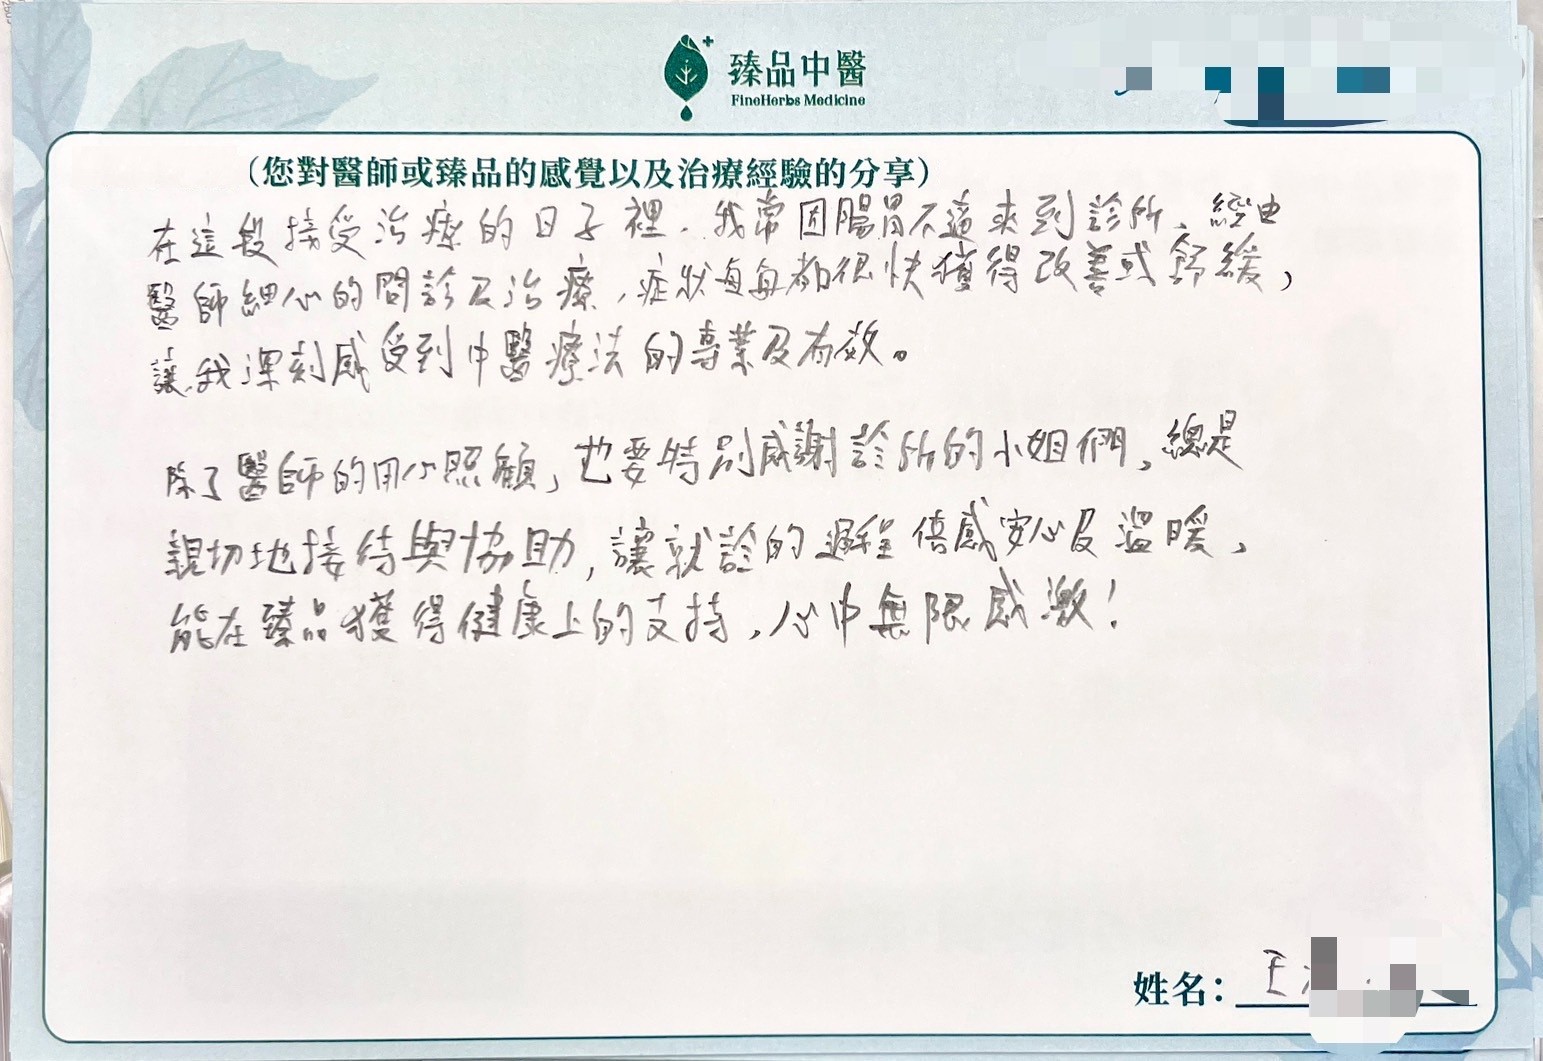 臻品中醫
FineHerbs Medicine
(您對醫師或臻品的感覺以及治療經驗的分享)
在這段接受治療的日子裡,我常因腸胃不適來到診所,經由
醫師細心的問診及治療,症狀每每都很快獲得改善或舒緩,
讓我深刻感受到中醫療法的專業及有效。
除了醫師的用心照顧,也要特別感謝診所的小姐們,總是
親切地接待與協助,讓就診的過程倍感安心及溫暖,
能在臻品獲得健康上的支持,心中無限感激!
姓名: 王